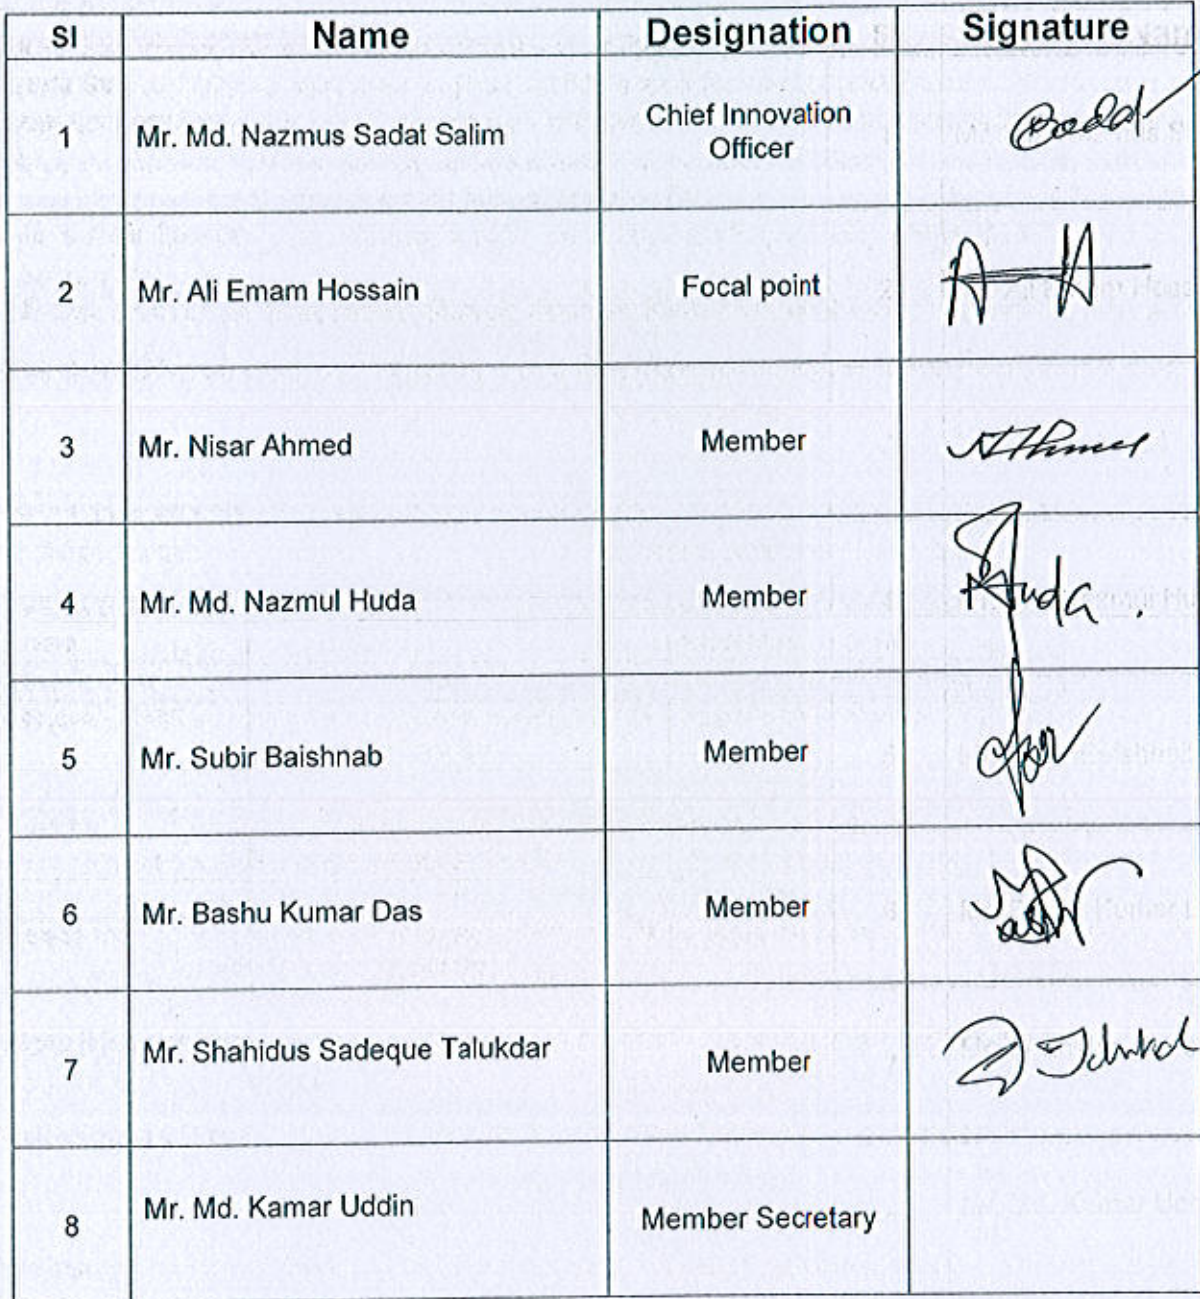 Sl Name Designation Signature
1 Mr. Md. Nazmus Sadat Salim Chief Innovation
Officer
2 Mr. Ali Emam Hossain Focal point
3 Mr. Nisar Ahmed Member
4 Mr. Md. Nazmul Huda Member Huda.
5 Mr. Subir Baishnab Member
6 Mr. Bashu Kumar Das Member
7 Mr. Shahidus Sadeque Talukdar Member
8 Mr. Md. Kamar Uddin Member Secretary